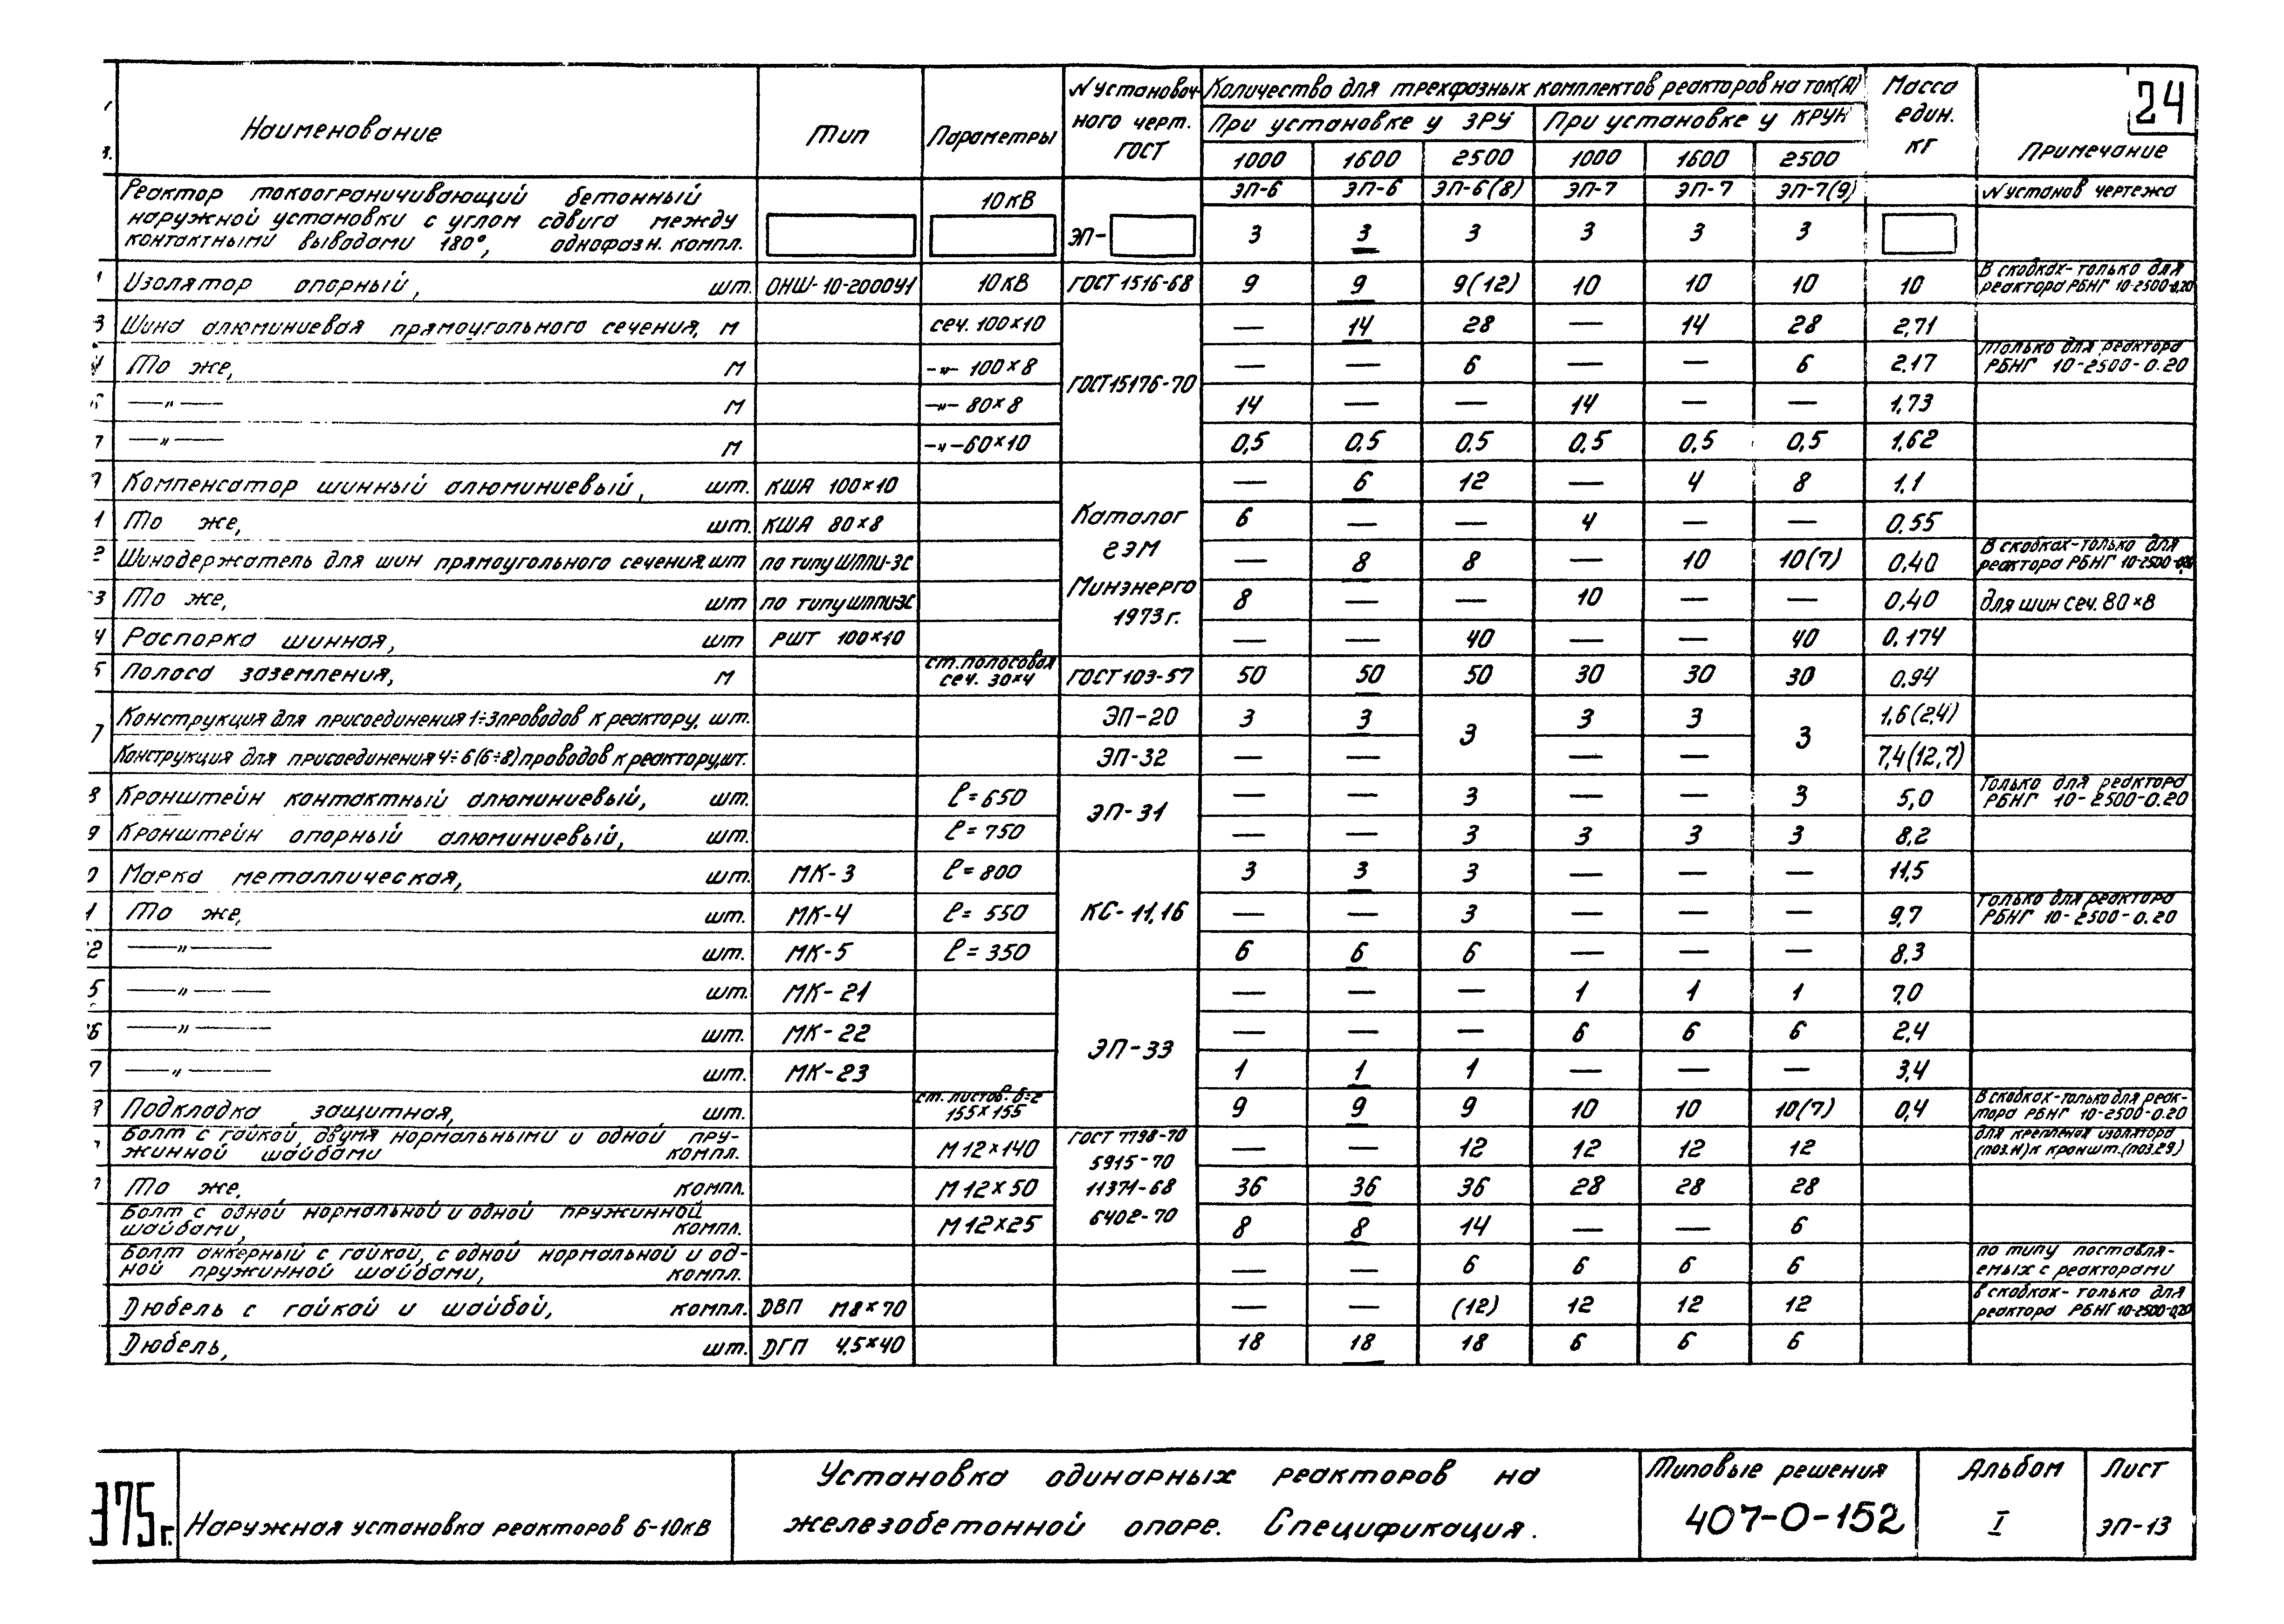 24
Наименование Тип Параметры N установоч- ного черт. ГОСТ Количество для трехфазных комплектов реакторов на ток(А) Масса един. кг Примечание
При установке у ЗРУ При установке у КРУН
1000 1600 2500 1000 1600 2500
Реактор токоограничивающий бетонный 10кВ ЭП-6 ЭП-6 ЭП-6(8) ЭП-7 ЭП-7 ЭП-7(9) N установ чертежа
наружной установки с углом сдвига между
контактными выводами 180°, однофазн. компл. ЭП- 3 3 3 3 3 3
Изолятор опорный, шт. ОНШ-10-2000У1 10кВ ГОСТ 1516-68 9 9 9(12) 10 10 10 10 В скобках-только для
реактора РБНГ 10-2500-0,20
3 Шина алюминиевая прямоугольного сечения, м сеч. 100×10 ГОСТ15176-70 — 14 28 — 14 28 2,71
То же, м -"- 100×8 — — 6 — — 6 2,17 Только для реактора
РБНГ 10-2500-0.20
—"— м -"- 80×8 14 — — 14 — — 1,73
7 —"— м -"-60×10 0,5 0,5 0,5 0,5 0,5 0,5 1,62
Компенсатор шинный алюминиевый, шт. КША 100×10 Каталог — 6 12 — 4 8 1,1
1 То же, шт. КША 80×8 ГЭМ 6 — — 4 — — 0,55
2 Шинодержатель для шин прямоугольного сечения, шт по типу ШППИ-3С Минэнерго — 8 8 — 10 10(7) 0,40 В скобках-только для
реактора РБНГ 10-2500-0,20
3 То же, шт по типу ШППИ3С 1973г. 8 — — 10 — — 0,40 для шин сеч. 80×8
4 Распорка шинная, шт РШТ 100×10 — — 40 — — 40 0,174
5 Полоса заземления, м ст.полосовая
сеч. 30×4 ГОСТ 103-57 50 50 50 30 30 30 0,94
7 Конструкция для присоединения 1÷3 проводов к реактору, шт. ЭП-20 3 3 3 3 3 3 1,6(2,4)
Конструкция для присоединения 4÷6(6÷8) проводов к реактору, шт. ЭП-32 — — — — 7,4(12,7)
8 Кронштейн контактный алюминиевый, шт. ℓ=650 ЭП-31 — — 3 — — 3 5,0 Только для реактора
РБНГ 10-2500-0.20
9 Кронштейн опорный алюминиевый, шт. ℓ=750 — — 3 3 3 3 8,2
Марка металлическая, шт. МК-3 ℓ=800 КС-11,16 3 3 3 — — — 11,5
1 То же, шт. МК-4 ℓ= 550 — — 3 — — — 9,7 Только для реактора
РБНГ 10-2500-0.20
2 —"— шт. МК-5 ℓ= 350 6 6 6 — — — 8,3
5 —"— шт. МК-21 ЭП-33 — — — 1 1 1 7,0
6 —"— шт. МК-22 — — — 6 6 6 2,4
7 —"— шт. МК-23 1 1 1 — — — 3,4
Подкладка защитная, шт. ст. листов. δ=2
155×155 9 9 9 10 10 10(7) 0,4 В скобках-только для реак-
тора РБНГ 10-2500-0.20
Болт с гайкой, двумя нормальными и одной пру-
жинной шайбами компл. М12×140 ГОСТ 7798-70
5915-70 — — 12 12 12 12 для крепления изолятора
(поз.11) к кроншт.(поз.29)
То же, компл. М12×50 11371-68 36 36 36 28 28 28
Болт с одной нормальной и одной пружинной
шайбами, компл. М12×25 6402-70 8 8 14 — — 6
Болт анкерный с гайкой, с одной нормальной и од-
ной пружинной шайбами, компл. — — 6 6 6 6 по типу поставля-
емых с реакторами
Дюбель с гайкой и шайбой, компл. ДВП М8×70 — — (12) 12 12 12 в скобках-только для
реактора РБНГ 10-2500-0,20
Дюбель, шт. ДГП 4,5×40 18 18 18 6 6 6
975г. Наружная установка реакторов 6-10кВ
Установка одинарных реакторов на
железобетонной опоре. Спецификация.
Типовые решения
407-0-152
Альбом
I
Лист
ЭП-13